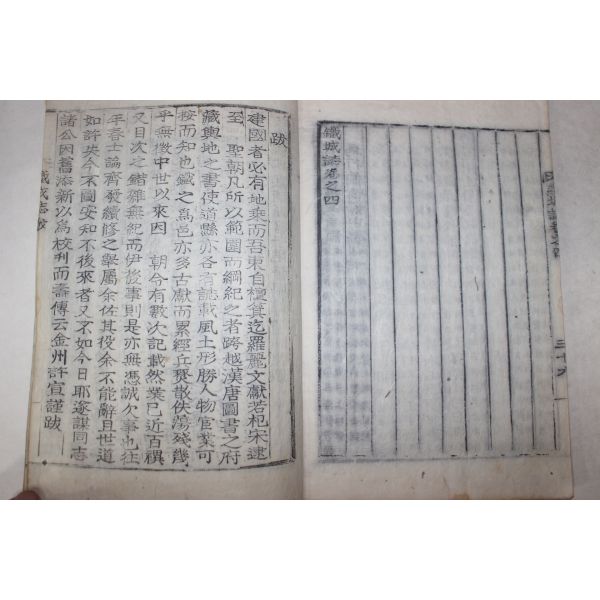 鐵城誌卷之四
跋
建國者必有地乘而吾東自檀箕迄羅麗文獻若杞宋逮
至 聖朝凡所以範圍而綱紀之者跨越漢唐圖書之府
藏輿地之書使道縣亦各有誌載風土形勝人物官業可
按而知也鐵之爲邑亦多古獻而累經兵燹散佚蕩殘幾
乎無徵中世以來因 朝令有數次記載然業已近百禩
又目次之錯雜無紀而伊後事則是亦無憑誠欠事也往
年春士論齊發續修之擧屬余佐其役余不能辭且世道
如許失今不圖安知不後來者又不如今日耶遂謀同志
諸公因舊添新以爲校刋而壽傳云金州許宣謹跋